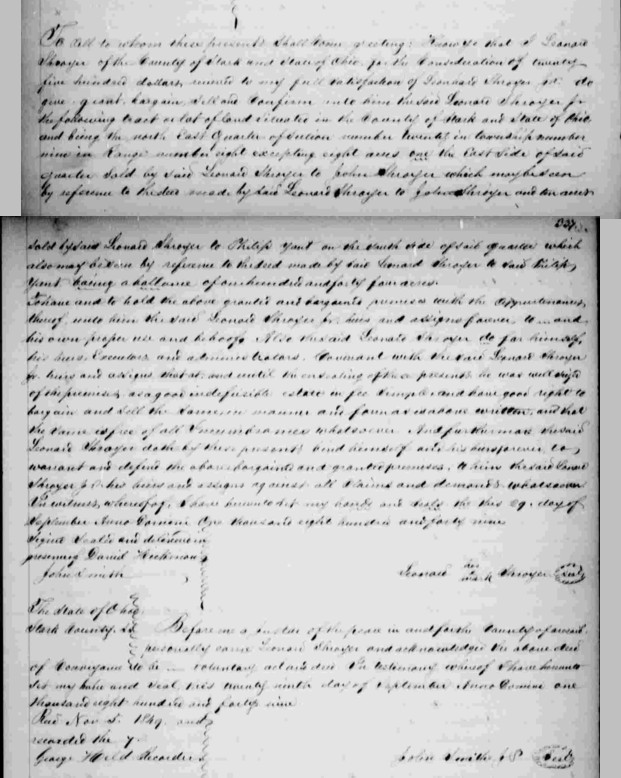 To all to whom these presents shall come greeting: Know ye that I Leonard
Shroyer of the County of Stark and State of Ohio for the Consideration of twenty
five hundred dollars, received to my full satisfaction of Leonard Shroyer Jr. do
give, grant, bargain, sell and Confirm unto him the said Leonard Shroyer Jr
the following tract or lot of land Situated in the County of Stark and State of Ohio
and being the north East Quarter of Section number twenty in township number
nine in Range number eight excepting eight acres on the East Side of said
quarter sold by said Leonard Shroyer to John Shroyer which may be seen
by reference to the deed made by Said Leonard Shroyer to John Shroyer and ten acres
337
sold by said Leonard Shroyer to Philip Yant on the south side of said quarter which
also may be seen by reference to the deed made by said Leonard Shroyer to said Philip
Yant leaving a ballance of one hundred and forty four acres.
To have and to hold the above granted and bargained premises with the Appurtenances,
thereof, unto him the said Leonard Shroyer Jr. heirs and assigns forever, to and
his own proper use and behoof. Also the said Leonard Shroyer do for himself
his heirs Executors and administrators, Covenant with the said Leonard Shroyer
Jr. heirs and assigns that at and until the ensealing of these presents he was well seized
of the premises, as a good indefeasible estate in fee Simple and have good right to
bargain and sell the Same in manner and form as is above written, and that
the same is free of all Encumbrances whatsoever. And furthermore the said
Leonard Shroyer doth by these presents bind himself and his heirs forever to,
warrant and defend the above bargained and granted premises, to him the said Leonard
Shroyer Jr his heirs and assigns against all Claims and demands whatsoever
In witness, whereof, I have hereunto set my hand and seal the this 29. day of
September Anno Domini One thousand eight hundred and forty nine
Signed Sealed and delivered in
presence of David Heckman
John Smith
Leonard his mark Shroyer Seal
The State of Ohio
Stark County, SS Before me a justice of the peace in and for the County aforesaid
personally came Leonard Shroyer and acknowledged the above deed
of Conveyance to be voluntary act and deed. In testimony whereof I have hereunto
Set my hand and seal, this twenty ninth day of September Anno Domini one
thousand eight hundred and forty nine
Recd Nov 5. 1849. and
recorded the 7.
George Held Recorder
John Smith J P Seal